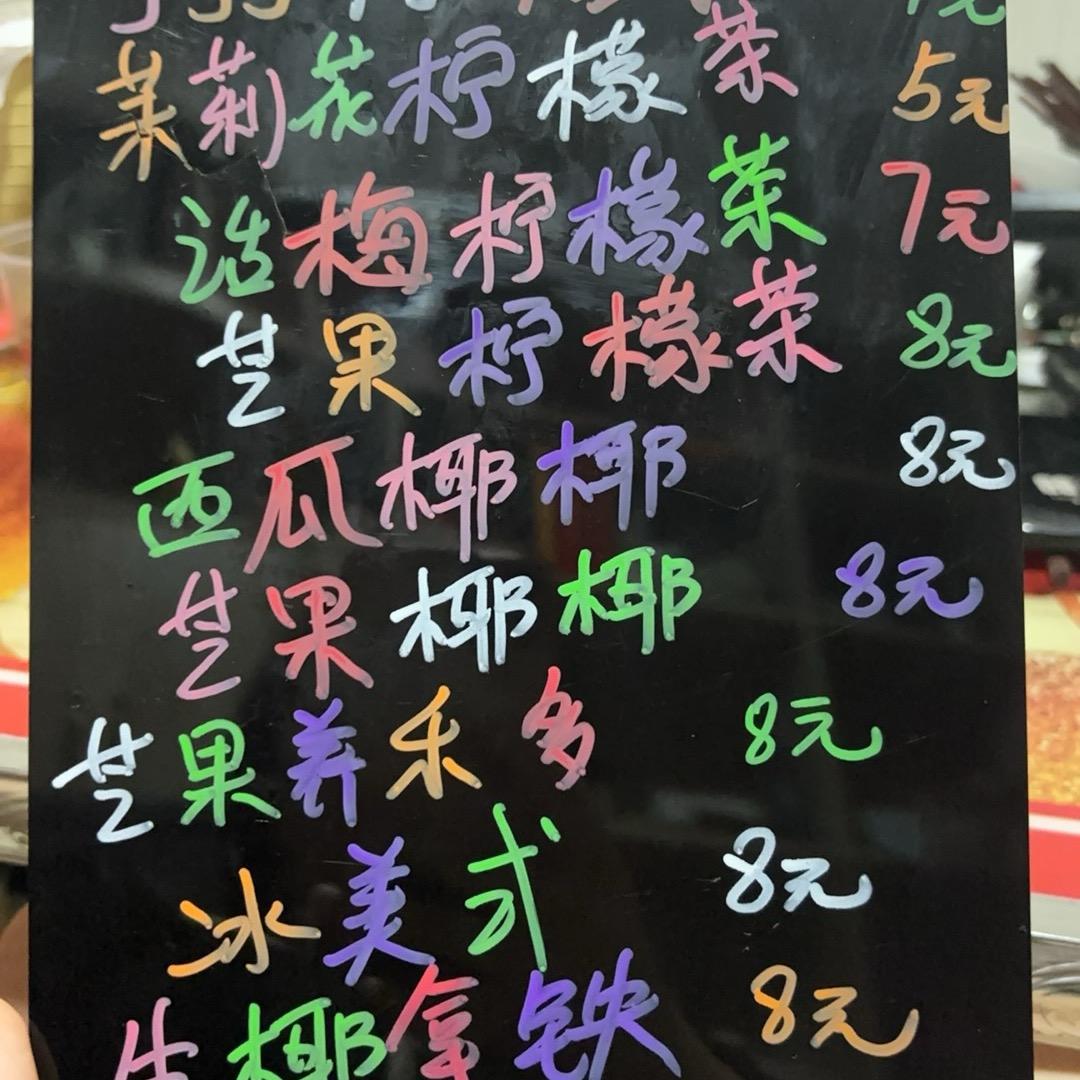 茉莉花柠檬茶 5元
话梅柠檬茶 7元
芒果柠檬茶 8元
西瓜椰椰 8元
芒果椰椰 8元
芒果养乐多 8元
冰美式 8元
生椰拿铁 8元